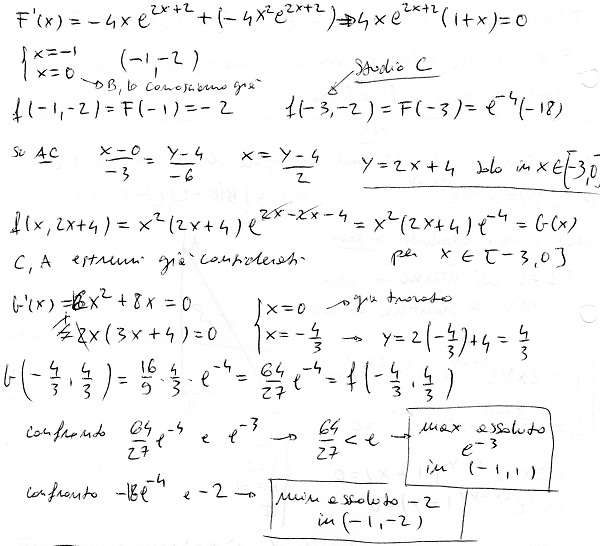 F'(x) = -4xe^{2x+2} + (-4x²e^{2x+2}) ⇒ 4xe^{2x+2}(1+x) = 0
{ x=-1 (-1,-2)
x=0 → B, lo conosciamo già
Studio C
f(-1,-2) = F(-1) = -2 f(-3,-2) = F(-3) = e^{-4}(-18)
su AC (x-0)/(-3) = (y-4)/(-6) x = (y-4)/2 y = 2x+4 solo in x∈[-3,0]
f(x,2x+4) = x²(2x+4)e^{2x-2x-4} = x²(2x+4)e^{-4} = G(x)
C, A estremi già considerati per x ∈ [-3,0]
G'(x) = 6x² + 8x = 0 { x=0 → già trovato
= 2x(3x+4) = 0 x = -4/3 → y = 2(-4/3)+4 = 4/3
G(-4/3, 4/3) = 16/9 · 4/3 · e^{-4} = 64/27 e^{-4} = f(-4/3, 4/3)
confronto 64/27 e^{-4} e e^{-3} → 64/27 < e → max assoluto
e^{-3}
in (-1,1)
confronto -18e^{-4} e -2 → min assoluto -2
in (-1,-2)